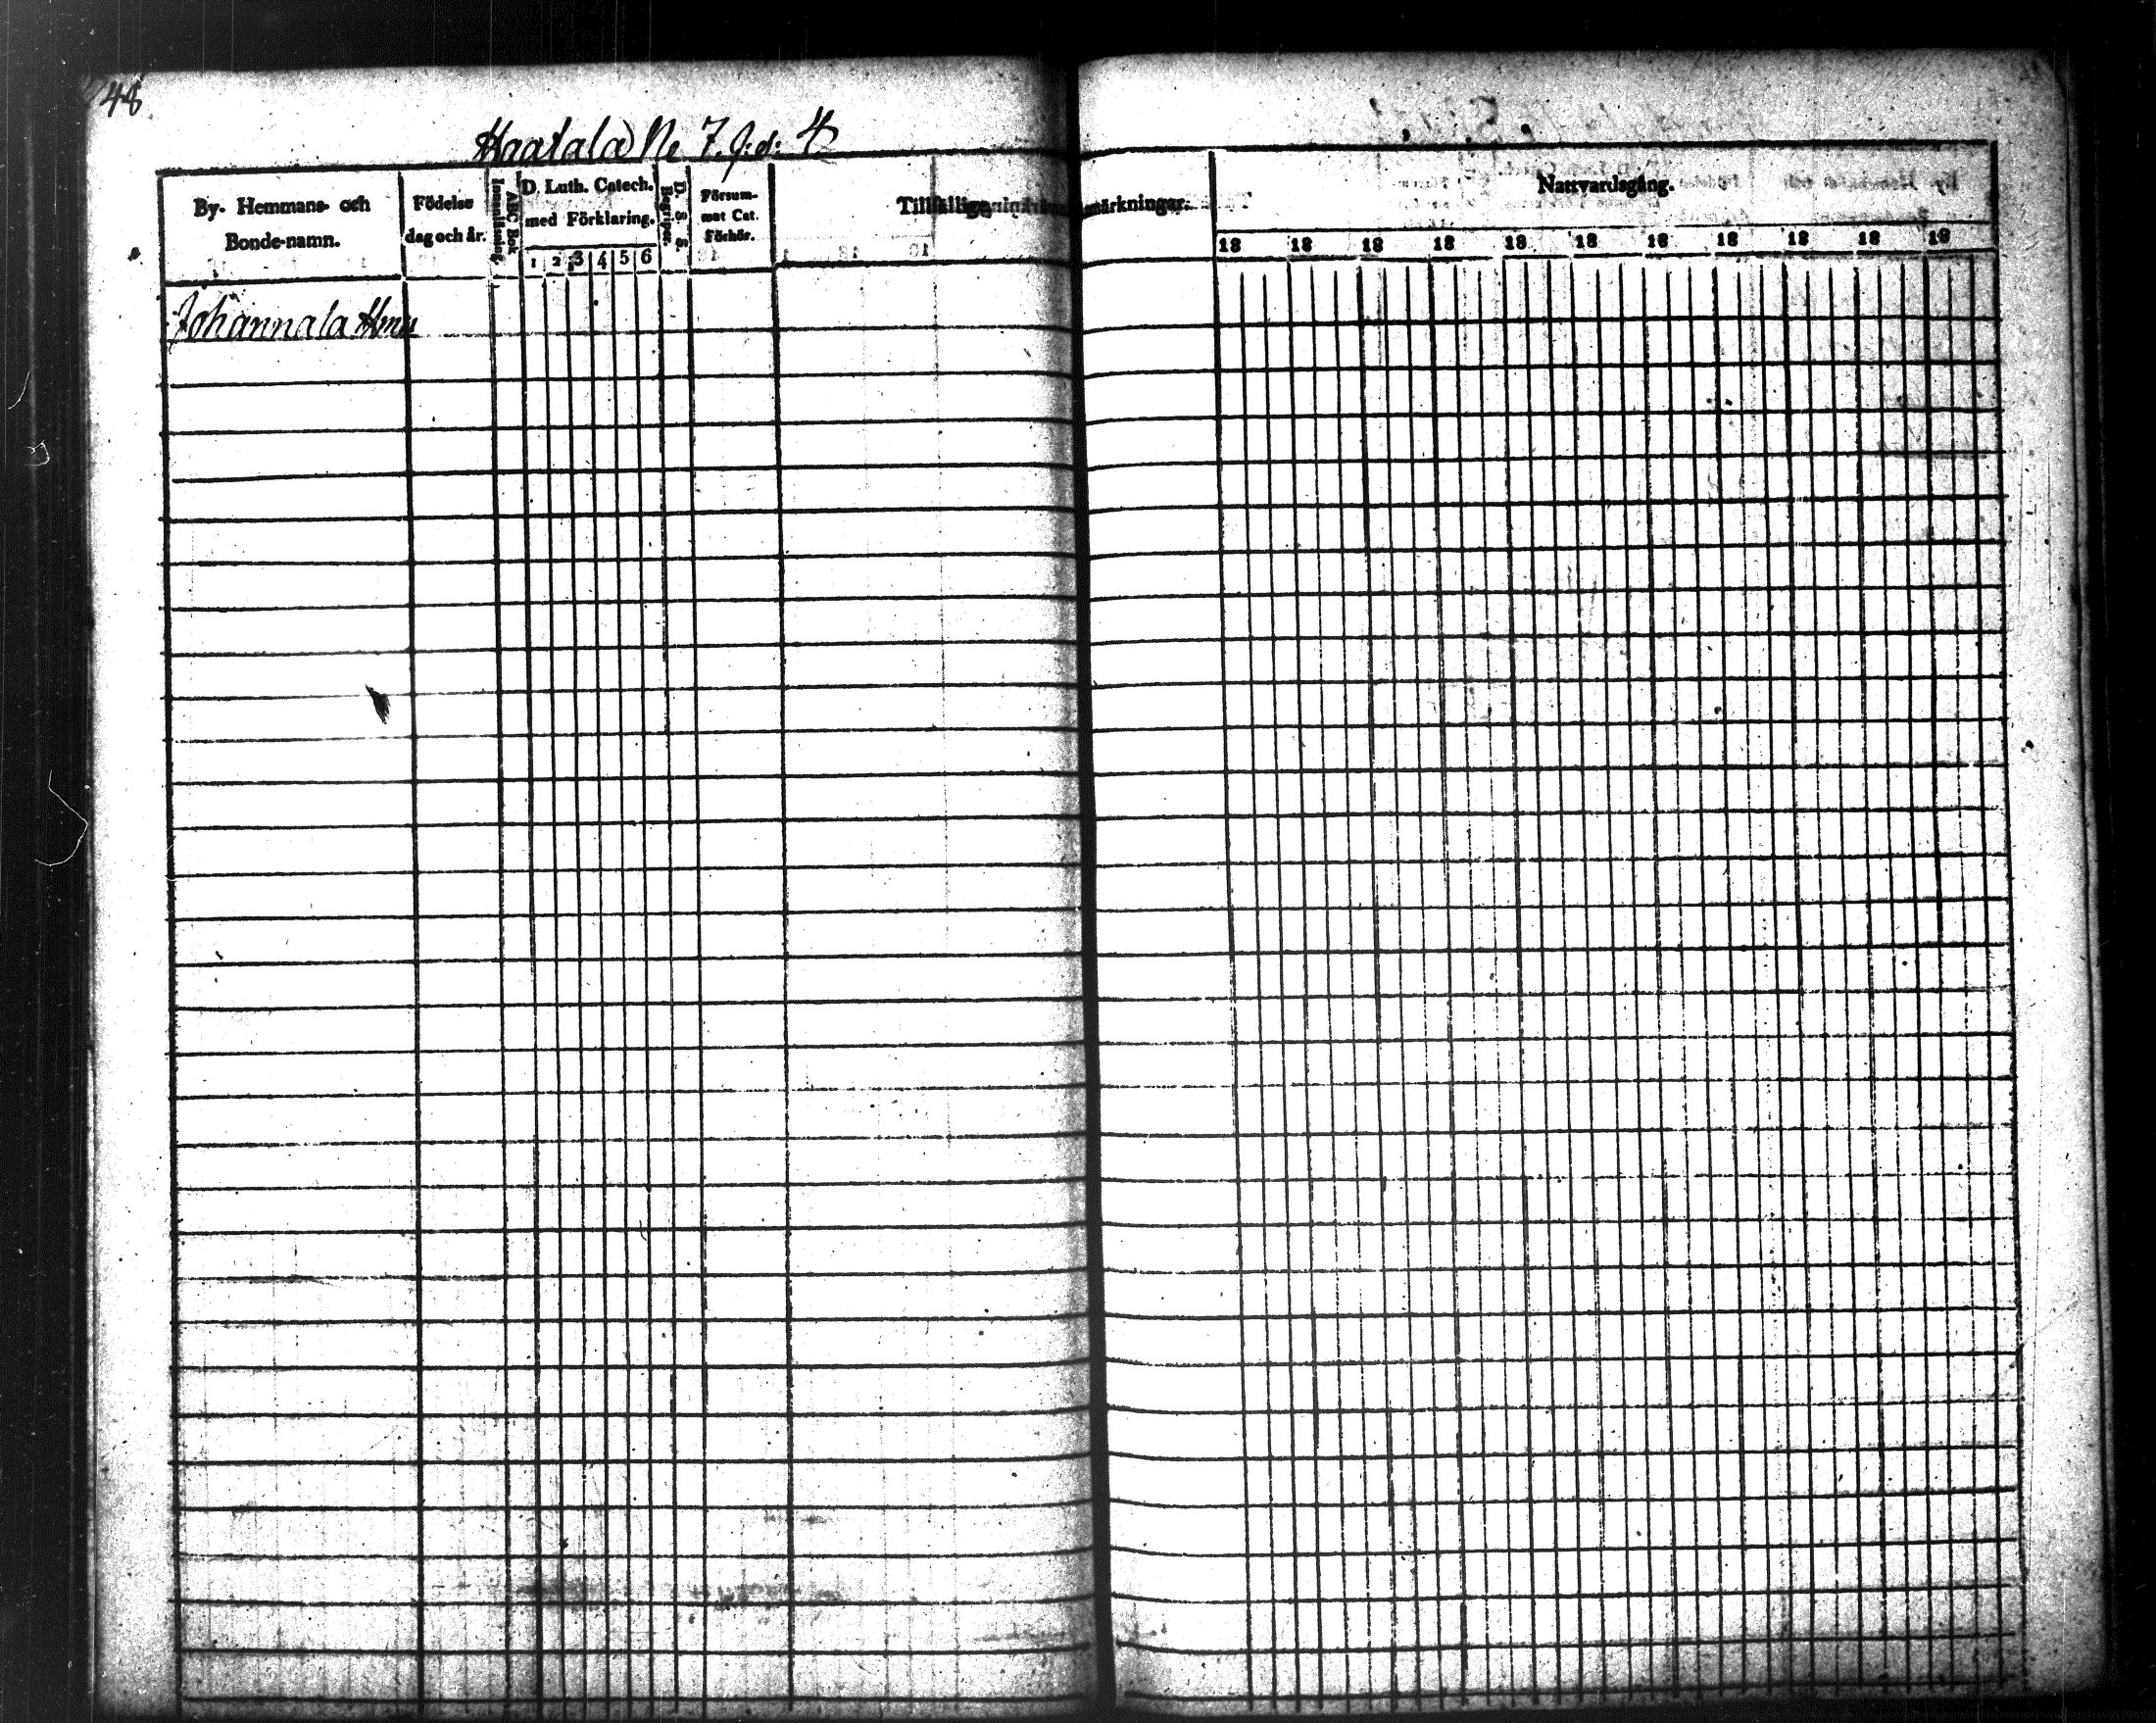 48
Haatala No 7. J: d: 4
By- Hemmans- och Bonde-namn.
Födelse dag och år.
Innanläsning.
ABC Bok
D. Luth. Catech. med Förklaring.
1 2 3 4 5 6
D. S. S. Begriper.
Försum- mat Cat. Förhör.
Tillfällige Anmärkningar.
Nattvardsgång.
18 18 18 18 18 18 18 18 18 18 18
Johannala